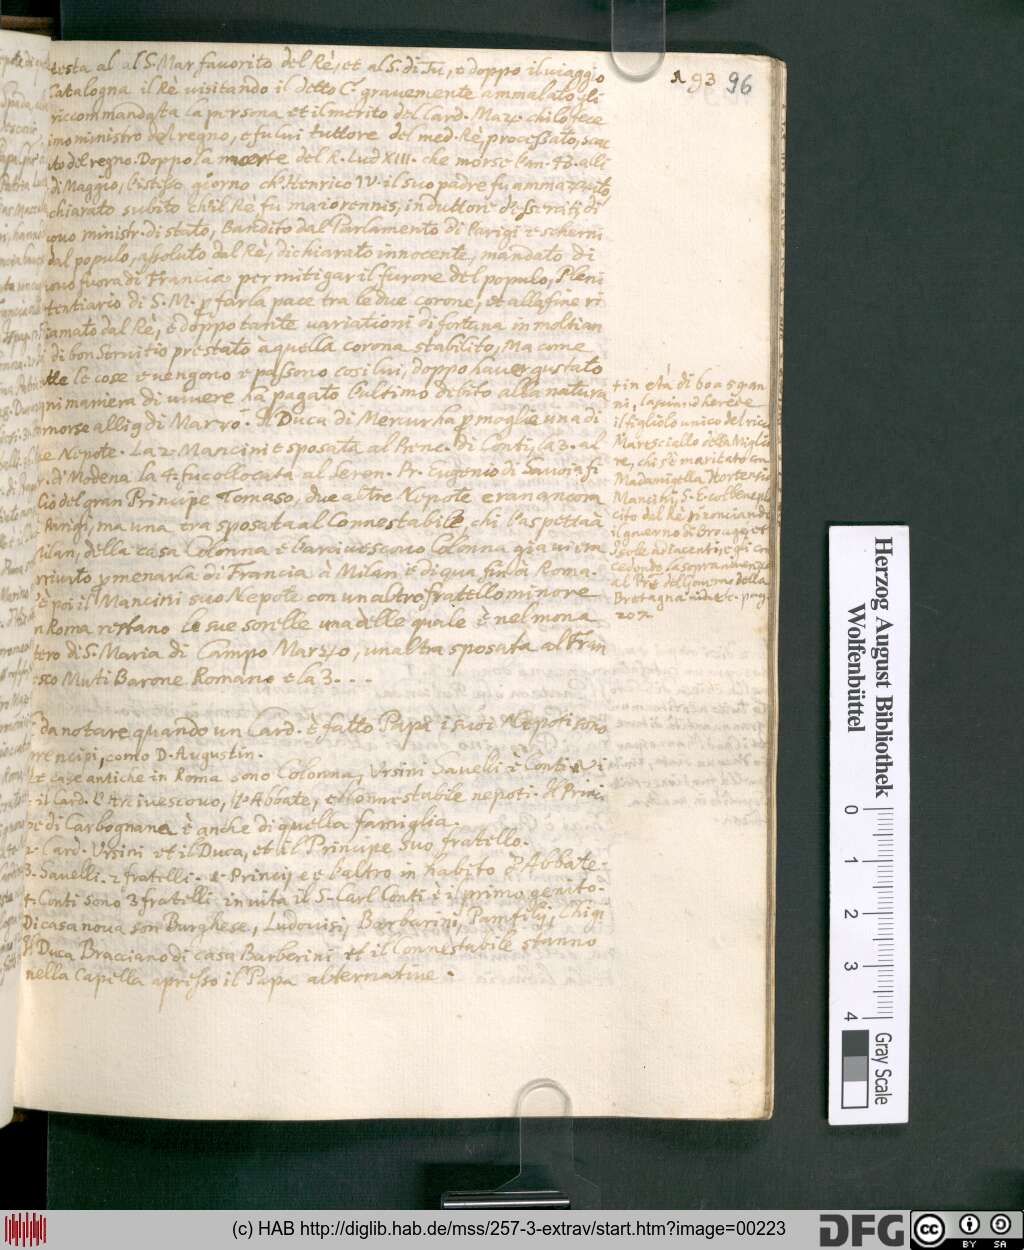 193 96
testa al al S. Mar favorito del Rè, et al S. di Tu, e doppo il viaggio
Catalogna il Rè visitando il detto C. gravemente ammalato gli
riccommandasta la persona et il merito del Card. Maz. chi lo fece
imo ministro del regno, e fu lui tuttore del med. Rè, processato,
ito del regno. Doppo la morte del R. Lud XIII. che morse l'an. 43. alli
di Maggio, l'istesso giorno ch' Henrico IV. il suo padre fu ammazzato
chiarato subito ch'il Rè fu maiorennis, induttore
ovo ministr. di stato, Bandito dal Parlamento di Parigi e scherni
dal populo, assoluto dal Rè, dichiarato innocente, mandato di
ovo fuora di Francia per mitigar il furore del populo, Pleni
tentiario di S. M. p far la pace tra le due corone, et alla fine ri
iamato dal Rè, e doppo tante variationi di fortuna in molti an
di bon Servitio prestato à quella corona stabilito, Ma come
tte le cose evengono e passono cosi lui, doppo haver gustato
gni maniera di vivere ha pagato l'ultimo debito alla natura
morse alli 9 di Marzo. Il Duca di Mercur ha p moglie una di
ue Nepote. La 2. Mancini e sposata al Prenc. di Conti, la 3. al
di Modena la 4. fu collocata al Seren. Pr. Eugenio di Savoia fi
lio del gran Principe Tomaso, due altre Nepote eran ancora
Parigi, ma una era sposata al Connestabile, chi l'aspetta à
Milan, della casa Colonna e l'arcivescovo Colonna gia vi era
rrivato p menarla di Francia à Milan e di qua fin à Roma.
'è poi il Mancini suo Nepote con un altro fratello minore
n Roma restano le sue sorelle una delle quale è nel mona
tero di S. Maria di Campo Marzo, un altra sposata al Fran
esco Muti Barone Romano e la 3. . . .
da notare quando un Card. è fatto Papa i suoi Nepoti sono
prencipi, como D. Augustin.
Le case antiche in Roma sono Colonna, Ursini Savelli e Conti. Vi
è il Card. l'Arcivescovo, l'Abbate, e Connestabile nepoti. Il Princi
pe di Carbognana è anche di quella famiglia.
2. Card. Ursini et il Duca, et il Principe suo fratello.
3. Savelli. 2 fratelli. 1. Princ e e l'altro in habito d'Abbate.
4. Conti sono 3 fratelli in vita il S. Carl Conti è il primo genito.
Di casa nova son Burghese, Ludovisij, Barbarini, Pamfilij, Chigi
Il Duca Bracciano di casa Barberini et il Connestabile stanno
nella Capella apresso il Papa alternative.
+ in età di 60 a 59 an
ni,
il figliolo unico del ricc
Maresciallo della Miglie
re, chi s'è maritato con
Madamigella Hortensia
Mancini, S. E.
cito del Rè rinonciando
il governo di Brouage et
Isole adiacenti, e gi con
cedendo la sopranuenza
al Pré del Govrno della
Bretagna vide pag.
207.
Herzog August Bibliothek
Wolfenbüttel
0 1 2 3 4
Gray Scale
(c) HAB http://diglib.hab.de/mss/257-3-extrav/start.htm?image=00223
DFG
cc BY SA